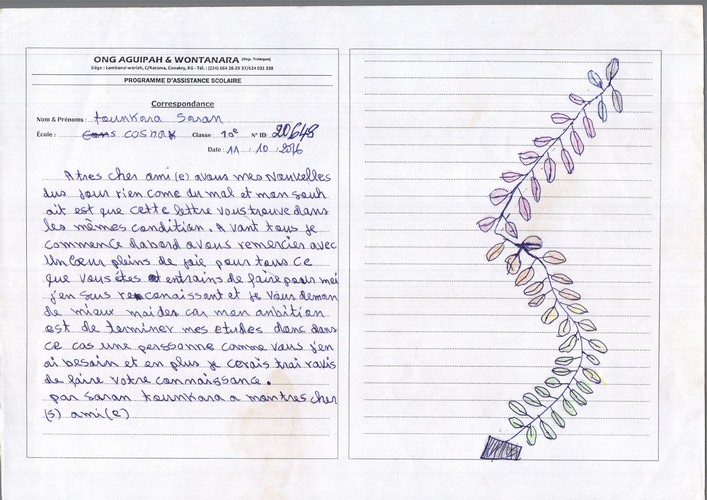 ONG AGUIPAH & WONTANARA (Rép. Tchèque)
Siège : Lambanyi-wariah, C/Ratoma, Conakry, RG - Tél. : (224) 664 28 29 37/624 031 338
PROGRAMME D'ASSISTANCE SCOLAIRE
Correspondance
Nom & Prénoms : tounkara Saran
École : COSNAK Classe 10e N° ID 20648
Date : 11 / 10 / 2016
A tres cher ami(e) avous mes nouvelles
dus jour rien come du mal et mon souh
ait est que cette lettre vous trouve dans
les mêmes condition. A vant tous je
commence dabord a vous remercier avec
un cœur pleins de joie pour tous ce
que vous êtes entrains de faire pour moi
j'en suis reconaissant et je vous deman
de mieux maides car mon anbition
est de terminer mes etudes donc dans
ce cas une perssonne comme vous j'en
ai besain et en plus je cerais trai ravis
de faire votre connaissance.
par Saran tounkara a montres cher
(s) ami(e)